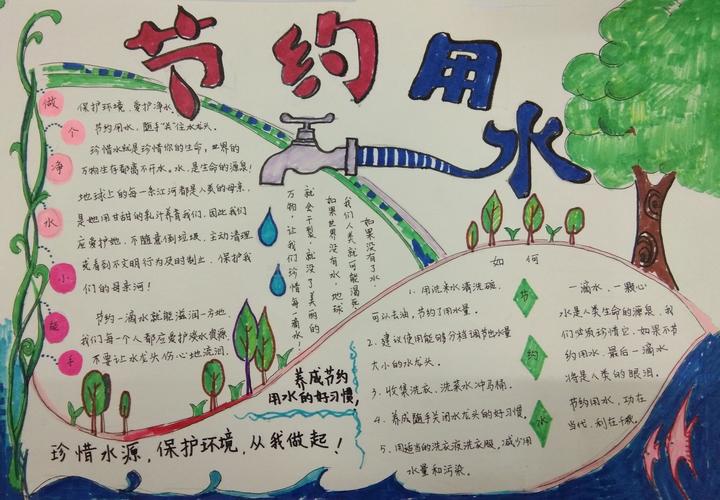 节约用水
做个净水小能手
保护环境、爱护净水
节约用水，随手“关”住水龙头。
珍惜水就是珍惜你的生命，世界的
万物生存都离不开水。水，是生命的源泉！
地球上的每一条江河都是人类的母亲，
是她用甘甜的乳汁养育我们，因此我们
应爱护她，不随意倒垃圾，主动清理
见看到不文明行为及时制止，保护我
们的母亲河！
节约一滴水就能滋润一方地，
我们每一个人都应爱护淡水资源
不要让水龙头伤心地流泪。
如果没有了水，
我们人类就可能渴死
如果世界没有水，地球
就会干裂，就没了美丽的
万物，让我们珍惜每一滴水，
养成节约
用水的好习惯，
珍惜水源，保护环境，从我做起！
如何
节约水
1、用洗米水清洗碗，
可以去油，节约了用水量。
2、建议使用能够分档调节水量
大小的水龙头。
3、收集洗衣、洗菜水冲马桶。
4、养成随手关闭水龙头的好习惯。
5、用适当的洗衣液洗衣服，减少用
水量和污染。
一滴水，一颗心
水是人类生命的源泉，我
们必须珍惜它，如果不节
约用水，最后一滴水
将是人类的眼泪。
节约用水，功在
当代，利在千秋。